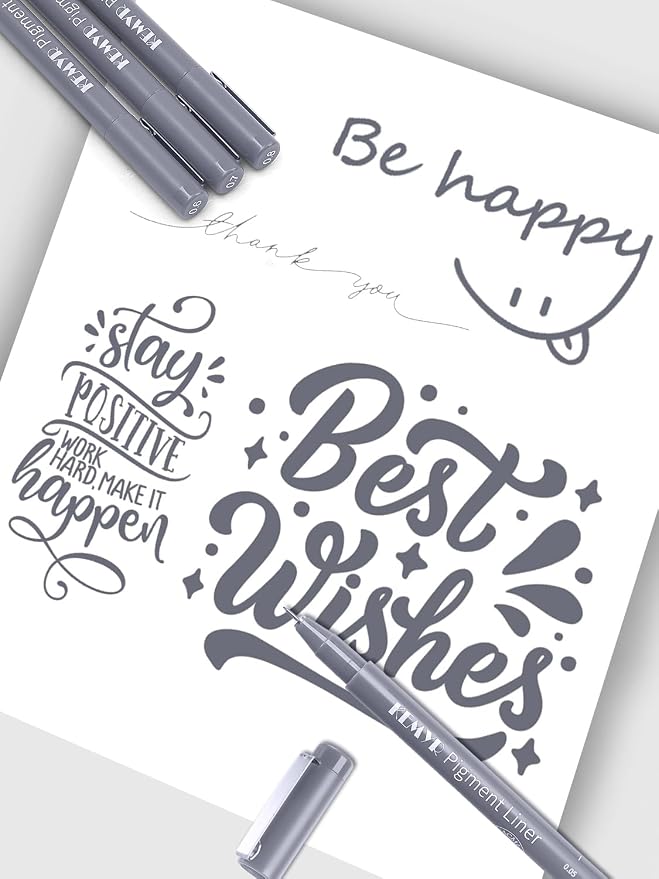 KEMYR Pigment
KEMYR Pigment
KEMYR Pigment
0.6
0.7
0.8
Be happy
thank you
stay
POSITIVE
WORK
HARD, MAKE IT
happen
Best
Wishes
KEMYR Pigment Liner
0.05